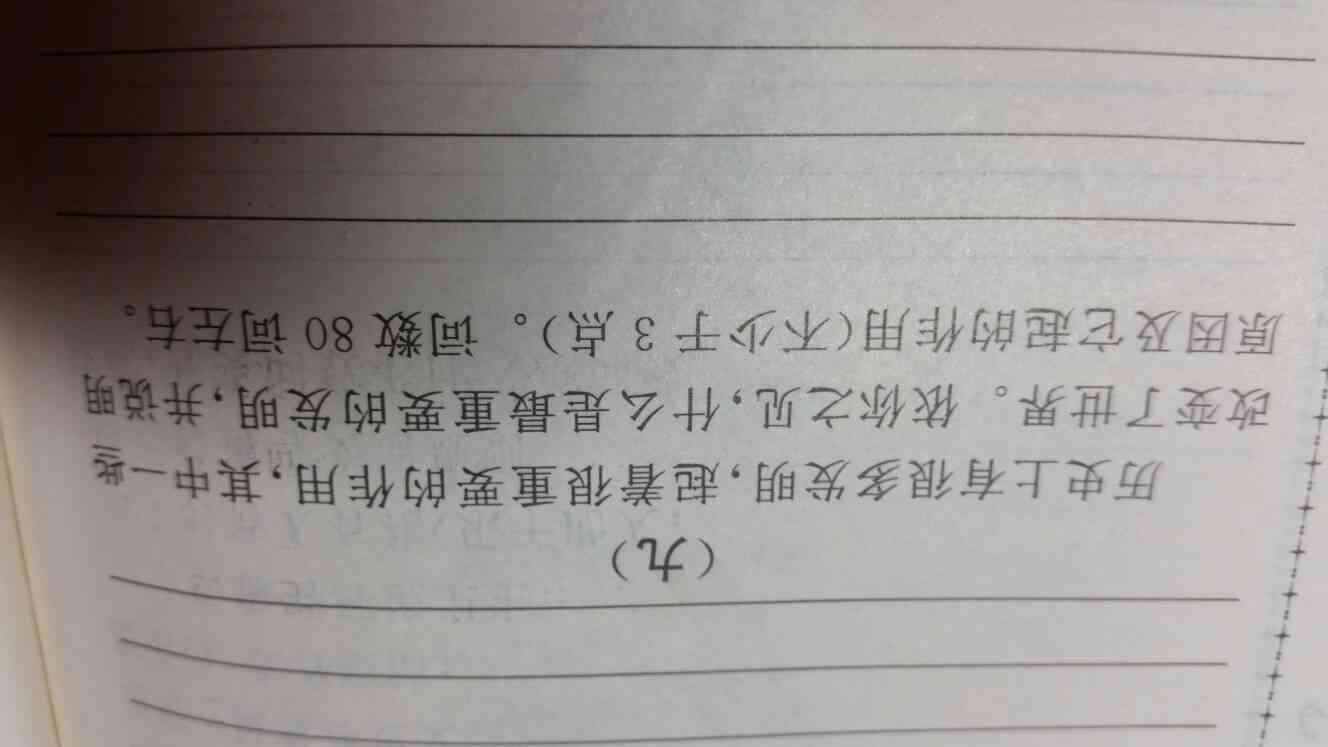 （九）
历史上有很多发明,起着很重要的作用,其中一些
改变了世界。依你之见,什么是最重要的发明,并说明
原因及它起的作用(不少于 3 点)。词数 80 词左右。